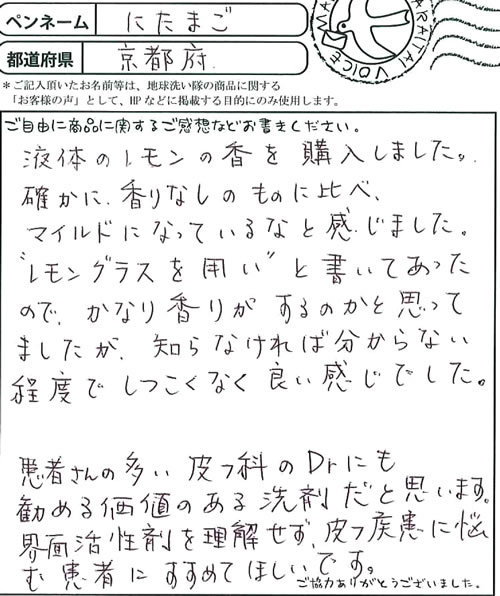 ペンネーム にたまご
都道府県 京都府
＊ご記入頂いたお名前等は、地球洗い隊の商品に関する
「お客様の声」として、HPなどに掲載する目的にのみ使用します。
ご自由に商品に関するご感想などお書きください。
液体のレモンの香を購入しました。
確かに、香りなしのものに比べ、
マイルドになっているなと感じました。
“レモングラスを用い”と書いてあった
ので、かなり香りがするのかと思って
ましたが、知らなければ分からない
程度でしつこくなく良い感じでした。
患者さんの多い皮フ科のDrにも
勧める価値のある洗剤だと思います。
界面活性剤を理解せず、皮フ疾患に悩
む患者にすすめてほしいです。
ご協力ありがとうございました。
ARAITAI VOICE MA